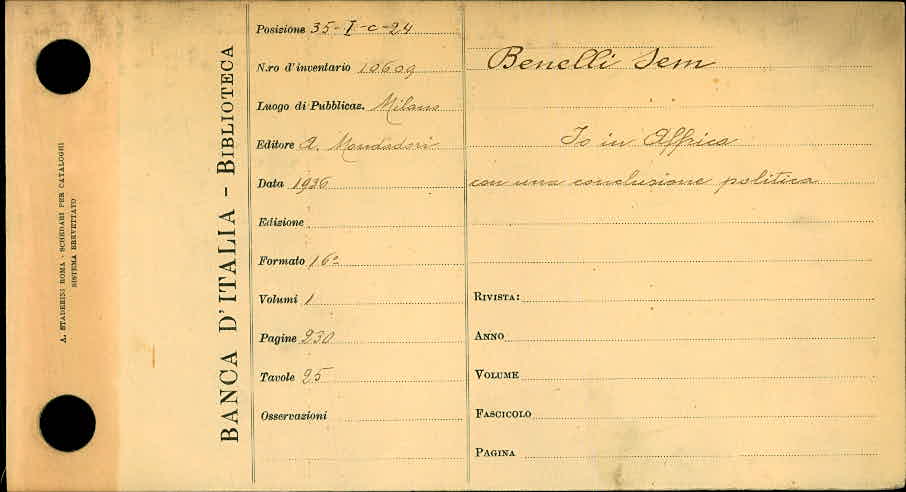 A. STADERINI ROMA - SCHEDARI PER CATALOGHI
SISTEMA BREVETTATO
BANCA D'ITALIA - BIBLIOTECA
Posizione 35-I-c-24
N.ro d'inventario 10609
Luogo di Pubblicaz. Milano
Editore A. Mondadori
Data 1936
Edizione
Formato 16°
Volumi 1
Pagine 230
Tavole 25
Osservazioni
Benelli Sem
Io in Affrica
con una conclusione politica
RIVISTA:
ANNO
VOLUME
FASCICOLO
PAGINA